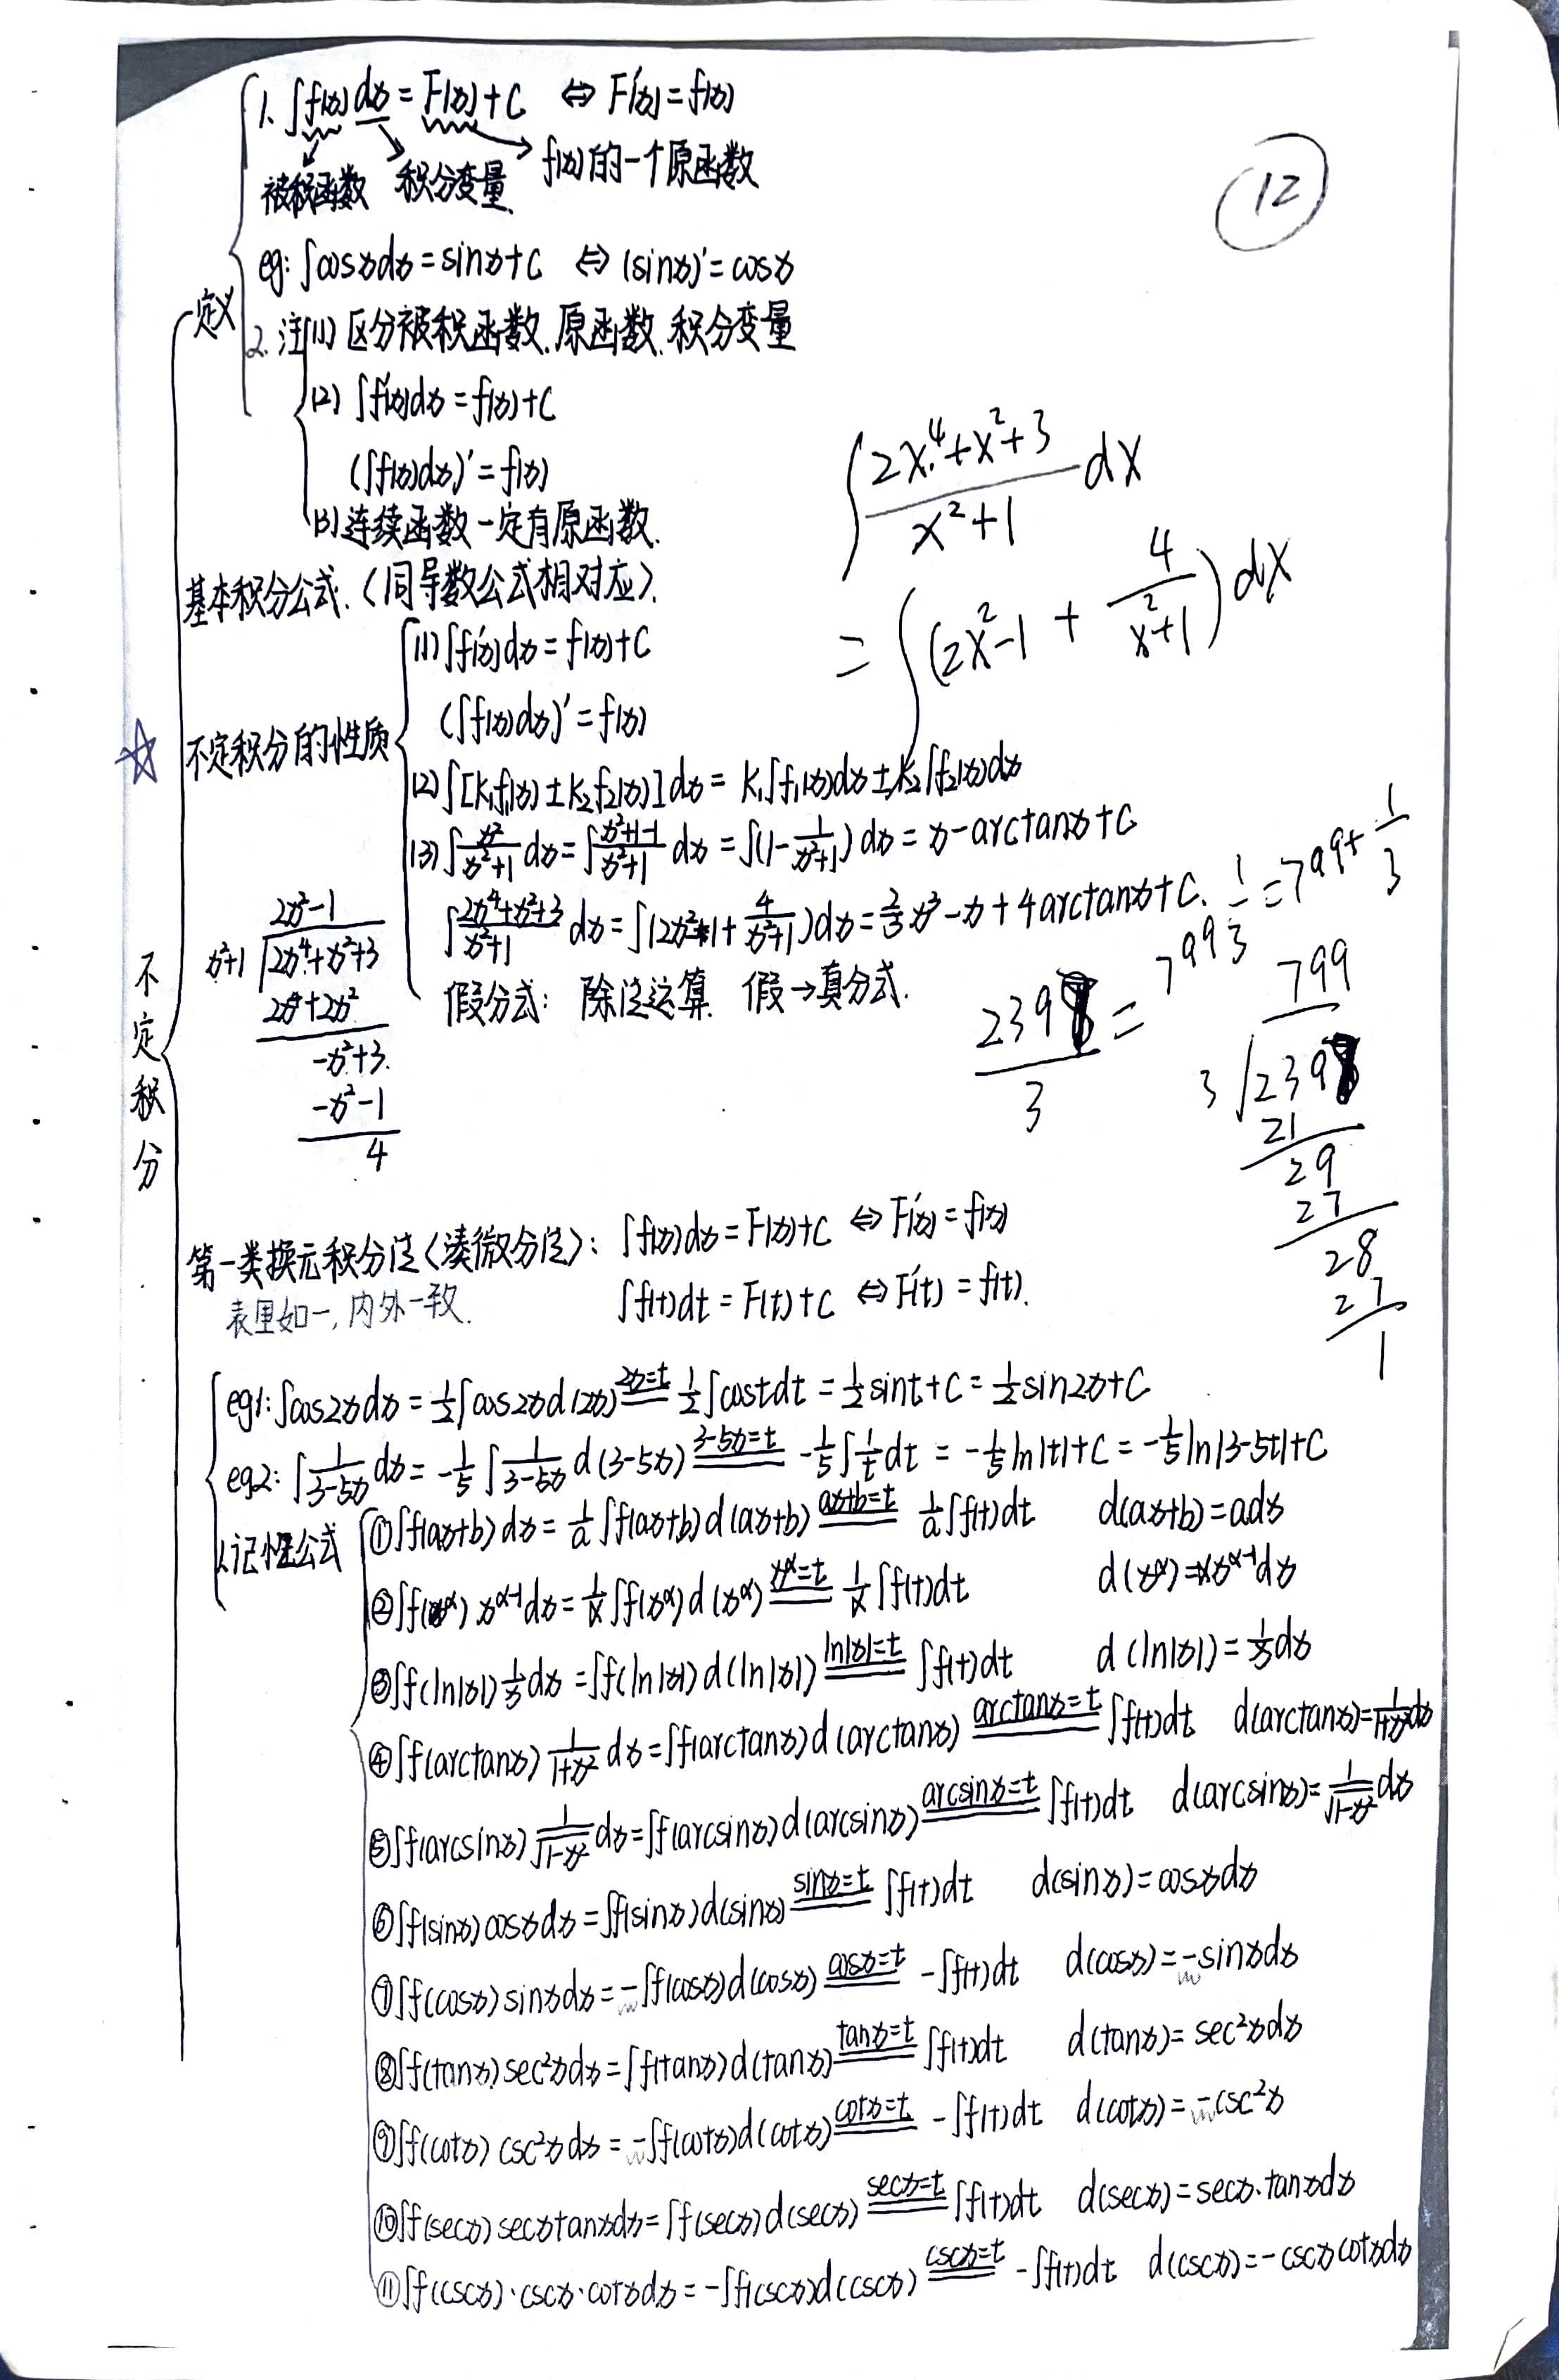 1. ∫f(x)dx = F(x)+C ⇔ F'(x)=f(x)
被积函数 积分变量 f(x)的一个原函数
12
eg: ∫cosxdx=sinx+C ⇔ (sinx)'=cosx
定义
2. 注(1) 区分被积函数、原函数、积分变量
(2) ∫f'(x)dx=f(x)+C
(∫f(x)dx)'=f(x)
(3)连续函数一定有原函数.
∫(2x⁴+x²+3)/(x²+1) dx
=∫(2x²-1 + 4/(x²+1))dx
基本积分公式.(同导数公式相对应).
不定积分
☆ 不定积分的性质
(1) ∫f'(x)dx=f(x)+C
(∫f(x)dx)'=f(x)
(2) ∫[k₁f₁(x)±k₂f₂(x)]dx = k₁∫f₁(x)dx±k₂∫f₂(x)dx
(3) ∫x²/(x²+1) dx=∫(x²+1-1)/(x²+1) dx=∫(1-1/(x²+1))dx=x-arctanx+C
∫(2x⁴+x²+3)/(x²+1) dx=∫(2x²-1+4/(x²+1))dx=2/3x³-x+4arctanx+C.
假分式: 除法运算 假→真分式.
2x²-1
x²+1 2x⁴+x²+3
2x⁴+2x²
-x²+3
-x²-1
4
2398/3 = 799 1/3 = 799+1/3
799
3 2398
21
29
27
28
27
1
第一类换元积分法(凑微分法): ∫f(x)dx=F(x)+C ⇔ F'(x)=f(x)
表里如一, 内外一致. ∫f(t)dt=F(t)+C ⇔ F'(t)=f(t).
eg1: ∫cos2xdx=1/2∫cos2xd(2x) 2x=t 1/2∫costdt=1/2sint+C=1/2sin2x+C
eg2: ∫1/(3-5x) dx=-1/5∫1/(3-5x) d(3-5x) 3-5x=t -1/5∫1/t dt=-1/5ln|t|+C=-1/5ln|3-5t|+C
记忆公式
①∫f(ax+b)dx=1/a∫f(ax+b)d(ax+b) ax+b=t 1/a∫f(t)dt d(ax+b)=adx
②∫f(x^α)x^(α-1)dx=1/α∫f(x^α)d(x^α) x^α=t 1/α∫f(t)dt d(x^α)=αx^(α-1)dx
③∫f(ln|x|)1/x dx=∫f(ln|x|)d(ln|x|) ln|x|=t ∫f(t)dt d(ln|x|)=1/x dx
④∫f(arctanx)1/(1+x²) dx=∫f(arctanx)d(arctanx) arctanx=t ∫f(t)dt d(arctanx)=1/(1+x²)dx
⑤∫f(arcsinx)1/√(1-x²) dx=∫f(arcsinx)d(arcsinx) arcsinx=t ∫f(t)dt d(arcsinx)=1/√(1-x²)dx
⑥∫f(sinx)cosxdx=∫f(sinx)d(sinx) sinx=t ∫f(t)dt d(sinx)=cosxdx
⑦∫f(cosx)sinxdx=-∫f(cosx)d(cosx) cosx=t -∫f(t)dt d(cosx)=-sinxdx
⑧∫f(tanx)sec²xdx=∫f(tanx)d(tanx) tanx=t ∫f(t)dt d(tanx)=sec²xdx
⑨∫f(cotx)csc²xdx=-∫f(cotx)d(cotx) cotx=t -∫f(t)dt d(cotx)=-csc²x
⑩∫f(secx)secxtanxdx=∫f(secx)d(secx) secx=t ∫f(t)dt d(secx)=secx·tanxdx
⑪∫f(cscx)·cscx·cotxdx=-∫f(cscx)d(cscx) cscx=t -∫f(t)dt d(cscx)=-cscxcotxdx